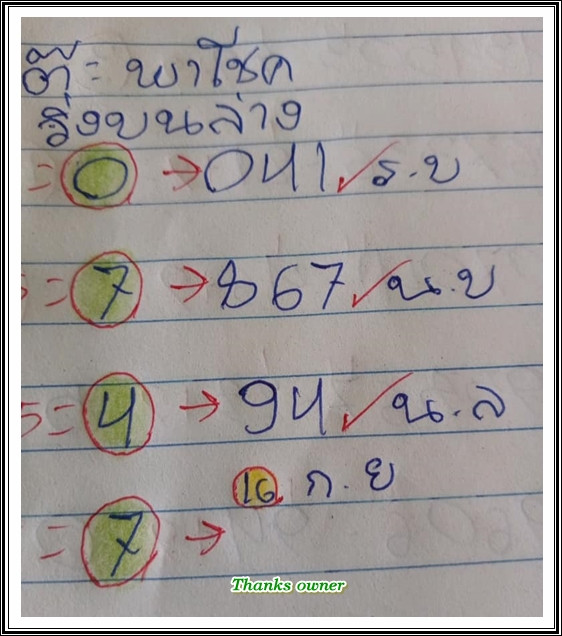 ตุ๊ะ พาโชค
วิ่งบนล่าง
= 0 → 041 ✓ ร.บ
5 = 7 → 867 ✓ น.บ
5 = 4 → 94 ✓ น.ล
16 ก.ย
= 7 →
Thanks owner